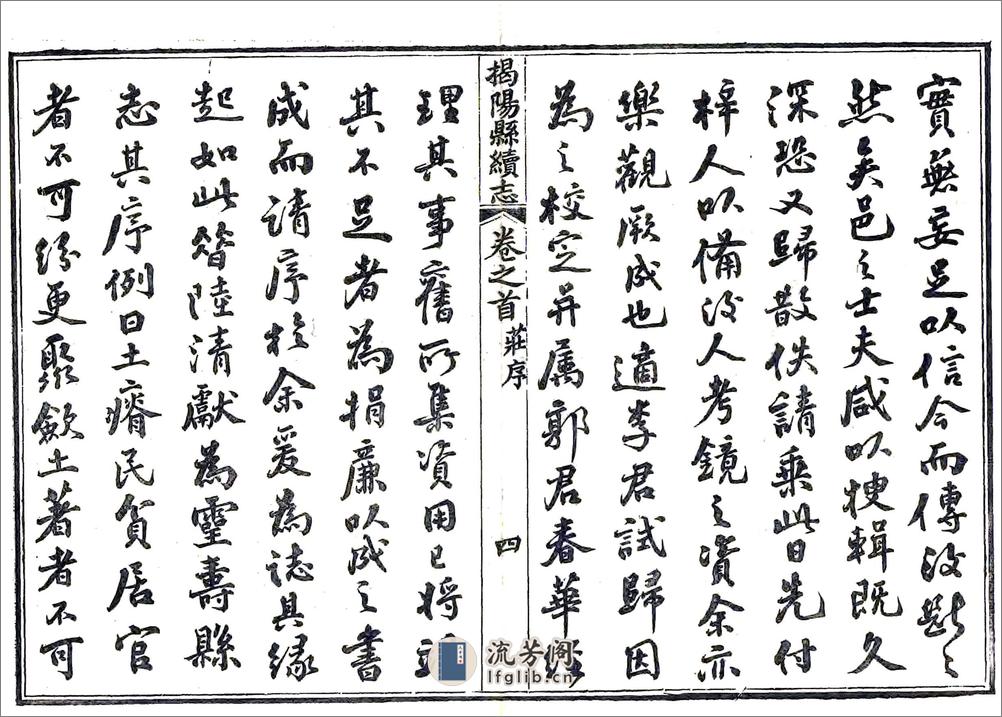 實無妄足以信今而傳後斷〻
然矣邑之士夫咸以搜輯既久
深恐又歸散佚請乘此日先付
梓人以備後人考鏡之資余亦
樂觀厥成也適李君試歸因
為之校定并属郭君春華經
揭陽縣續志 卷之首 莊序 四
理其事舊所集資用已將
其不足者為捐廉以成之書
成而請序於余爰為誌其緣
起如此昔陸清獻為靈壽縣
志其序例曰土瘠民貧居官
者不可紛更聚斂土著者不可
流芳阁
lfglib.cn